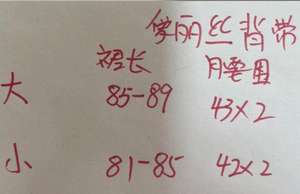 傢丽丝背带
裙长 腰围
大 85-89 43×2
小 81-85 42×2